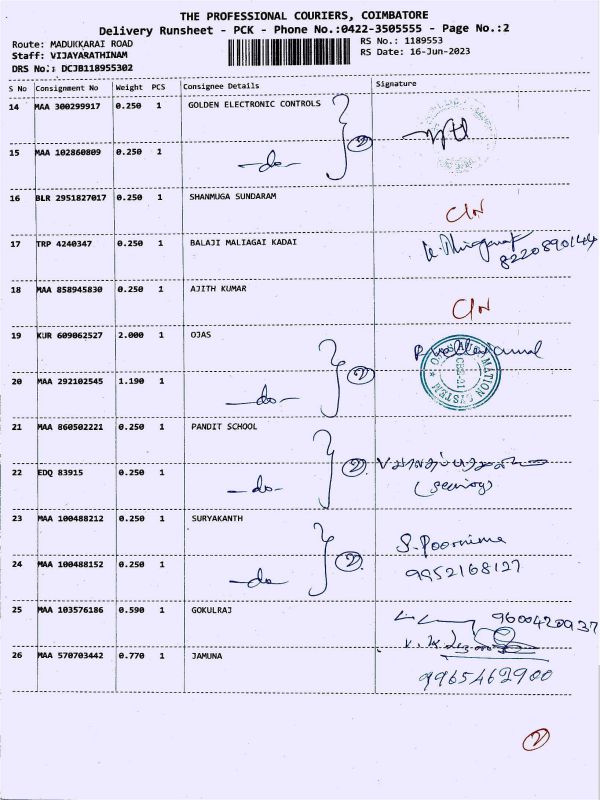 THE PROFESSIONAL COURIERS, COIMBATORE
Delivery Runsheet - PCK - Phone No.:0422-3505555 - Page No.:2
Route: MADUKKARAI ROAD
RS No.: 1189553
Staff: VIJAYARATHINAM
RS Date: 16-Jun-2023
DRS No.: DCJB118955302
S No Consignment No Weight PCS Consignee Details Signature
14 MAA 300299917 0.250 1 GOLDEN ELECTRONIC CONTROLS
2
15 MAA 102860809 0.250 1 -do-
16 BLR 2951827017 0.250 1 SHANMUGA SUNDARAM C/N
17 TRP 4240347 0.250 1 BALAJI MALIAGAI KADAI
8220890144
18 MAA 858945830 0.250 1 AJITH KUMAR C/N
19 KUR 609062527 2.000 1 OJAS
2
20 MAA 292102545 1.190 1 -do-
21 MAA 860502221 0.250 1 PANDIT SCHOOL
2
22 EDQ 83915 0.250 1 -do-
23 MAA 100488212 0.250 1 SURYAKANTH S. Poornima
2
24 MAA 100488152 0.250 1 -do- 9952168127
25 MAA 103576186 0.590 1 GOKULRAJ 9600420937
26 MAA 570703442 0.770 1 JAMUNA
9965462900
2